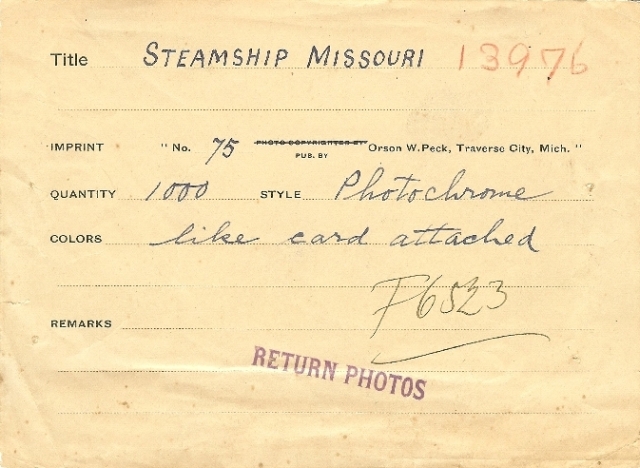 Title STEAMSHIP MISSOURI 13976
IMPRINT "No. 75 PHOTO COPYRIGHTED BY Orson W. Peck, Traverse City, Mich."
PUB. BY
QUANTITY 1000 STYLE Photochrome
COLORS like card attached
F6523
REMARKS
RETURN PHOTOS